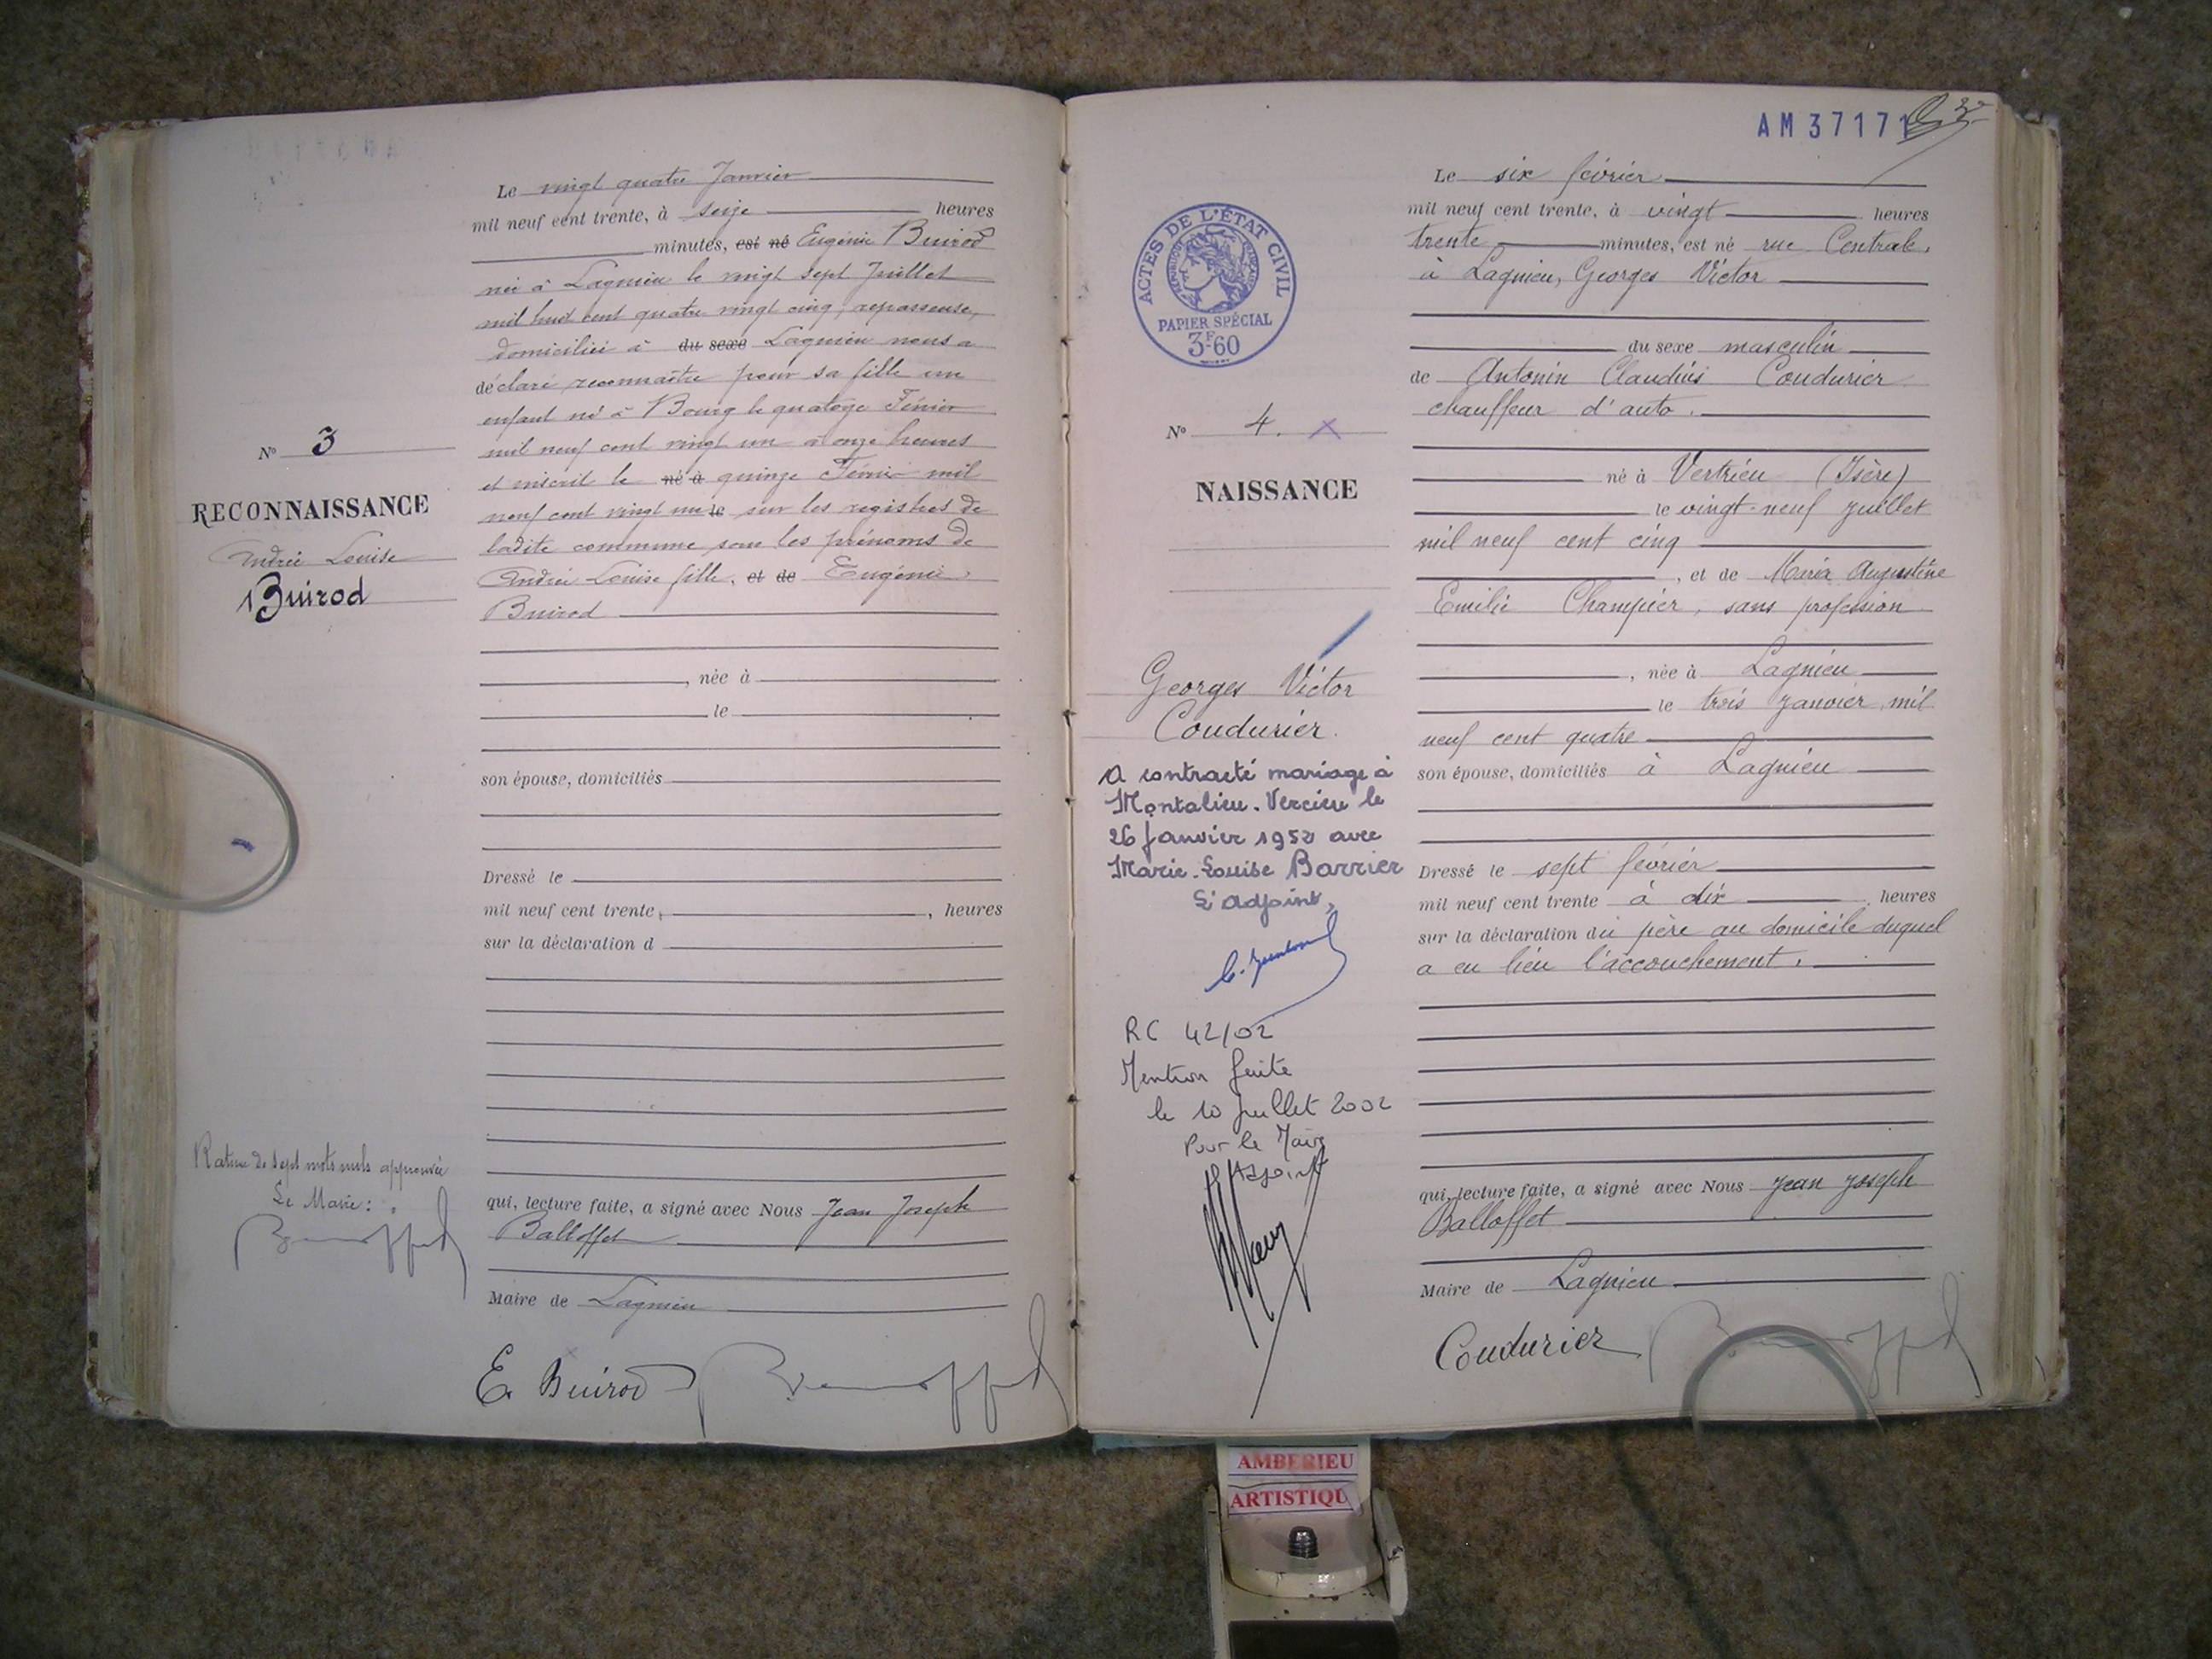 Le vingt quatre Janvier
mil neuf cent trente, à seize heures
minutes, est né Eugénie Buirod
née à Lagnieu le vingt sept Juillet
mil huit cent quatre vingt cinq, repasseuse,
domiciliée à du sexe Lagnieu nous a
déclaré reconnaitre pour sa fille un
enfant né à Bourg le quatorze Février
mil neuf cent vingt un à onze heures
et inscrit le né à quinze Février mil
neuf cent vingt un le sur les registres de
ladite commune sous les prénoms de
Andrée Louise fille, et de Eugénie
Buirod
, née à
le
son épouse, domiciliés
Dressé le
mil neuf cent trente, , heures
sur la déclaration d
qui, lecture faite, a signé avec Nous Jean Joseph
Balloffet
Maire de Lagnieu
E. Buirod
N° 3
RECONNAISSANCE
Andrée Louise
Buirod
Rature de sept mots nuls approuvée
Le Maire :
AM37171
ACTES DE L'ÉTAT CIVIL
RÉPUBLIQUE FRANÇAISE
PAPIER SPÉCIAL
3F60
N° 4. X
NAISSANCE
Georges Victor
Coudurier.
A contracté mariage à
Montalieu-Vercieu le
26 Janvier 1952 avec
Marie-Louise Barrier
L'adjoint,
RC 42/02
Mention faite
le 10 juillet 2002
Pour le Maire
l'Adjoint
Le six février
mil neuf cent trente, à vingt heures
trente minutes, est né rue Centrale,
à Lagnieu, Georges Victor
du sexe masculin
de Antonin Claudius Coudurier
chauffeur d'auto.
né à Vertrieu (Isère)
le vingt-neuf juillet
mil neuf cent cinq
, et de Maria Augustine
Emilie Champier, sans profession
, née à Lagnieu
le trois janvier mil
neuf cent quatre
son épouse, domiciliés à Lagnieu
Dressé le sept février
mil neuf cent trente à dix heures
sur la déclaration du père au domicile duquel
a eu lieu l'accouchement.
qui, lecture faite, a signé avec Nous Jean Joseph
Balloffet
Maire de Lagnieu
Coudurier
AMBERIEU
ARTISTIQU